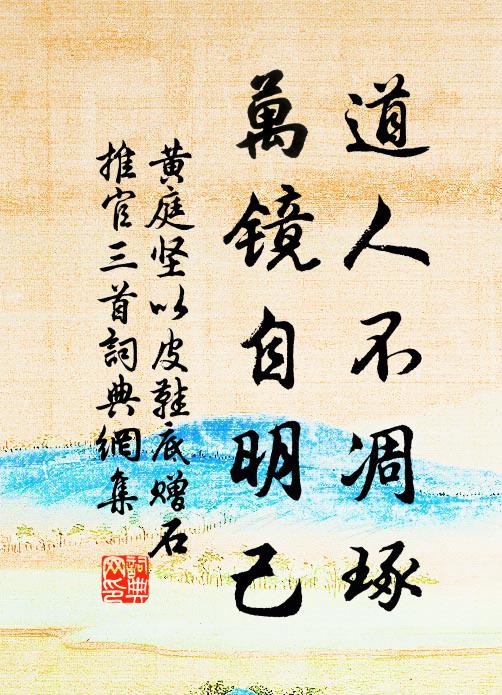 道人不凋琢
萬镜自明己
黄庭坚以皮鞋底赠石
推官三首詞典網集
詞典網印